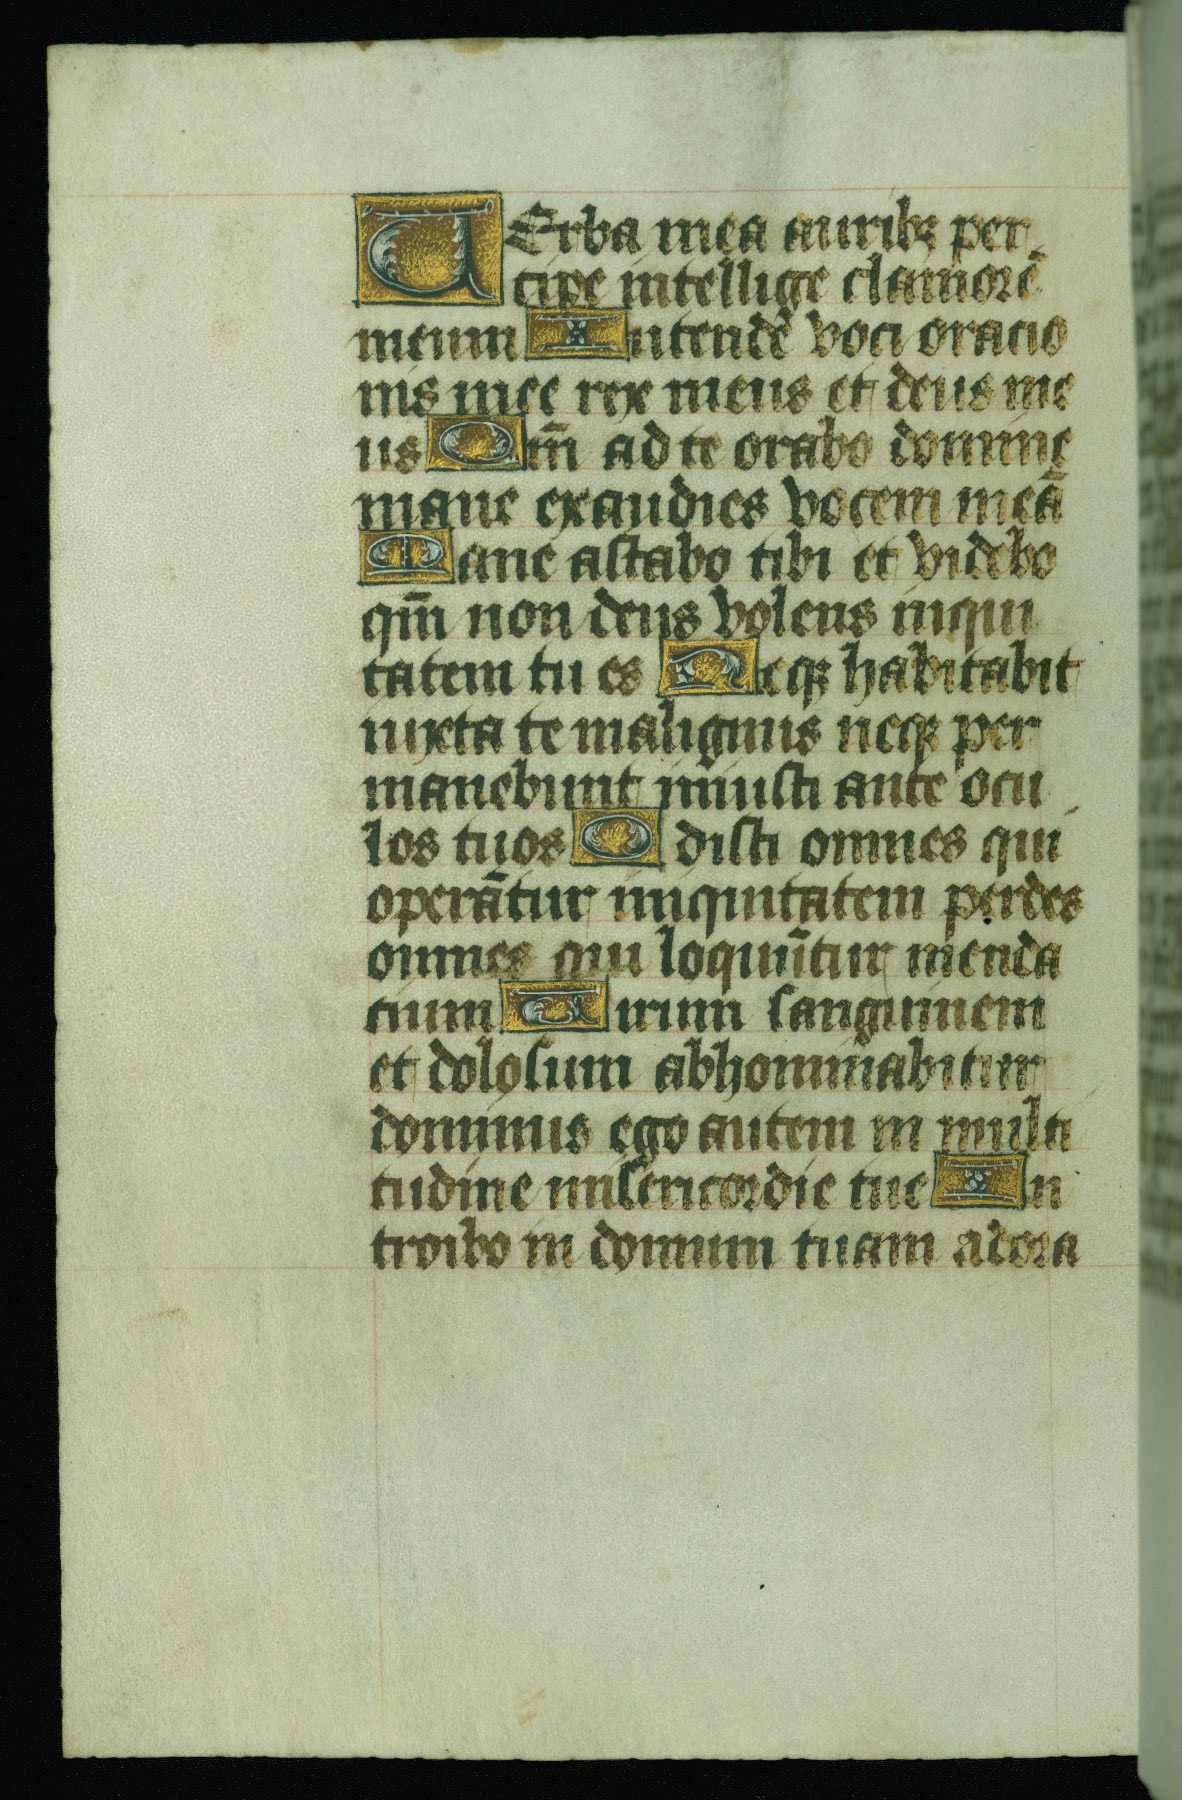 VErba mea auribꝫ per
cipe intellige clamorē
meum Intende voci oracio
nis mee rex meus et deus me
us Qm̄ ad te orabo domine
mane exaudies vocem meā
Mane astabo tibi et videbo
qm̄ non deus volens iniqui
tatem tu es Neqꝫ habitabit
iuxta te malignus neqꝫ per
manebunt iniusti ante ocu
los tuos Odisti omnes qui
operāt̄ur iniquitatem perdes
omnes qui loquūtur menda
cium Uirum sanguinem
et dolosum abhominabitur
dominus ego autem in multi
tudine misericordie tue In
troibo in domum tuam adora